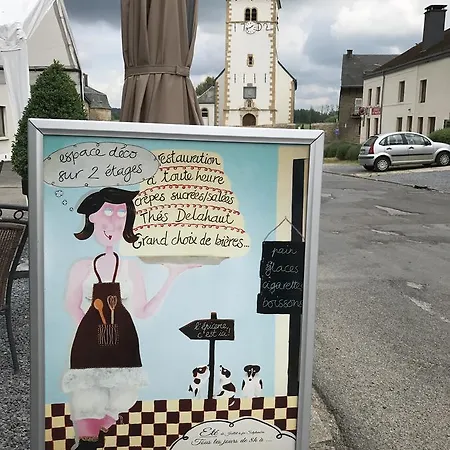 espace déco
sur 2 étages
Restauration
à toute heure
crêpes sucrées/salées
Thés Delahaut
Grand choix de bières...
pain
glaces
cigarettes
boissons
l'épicerie,
c'est ici
Tous les jours de 8h à ...